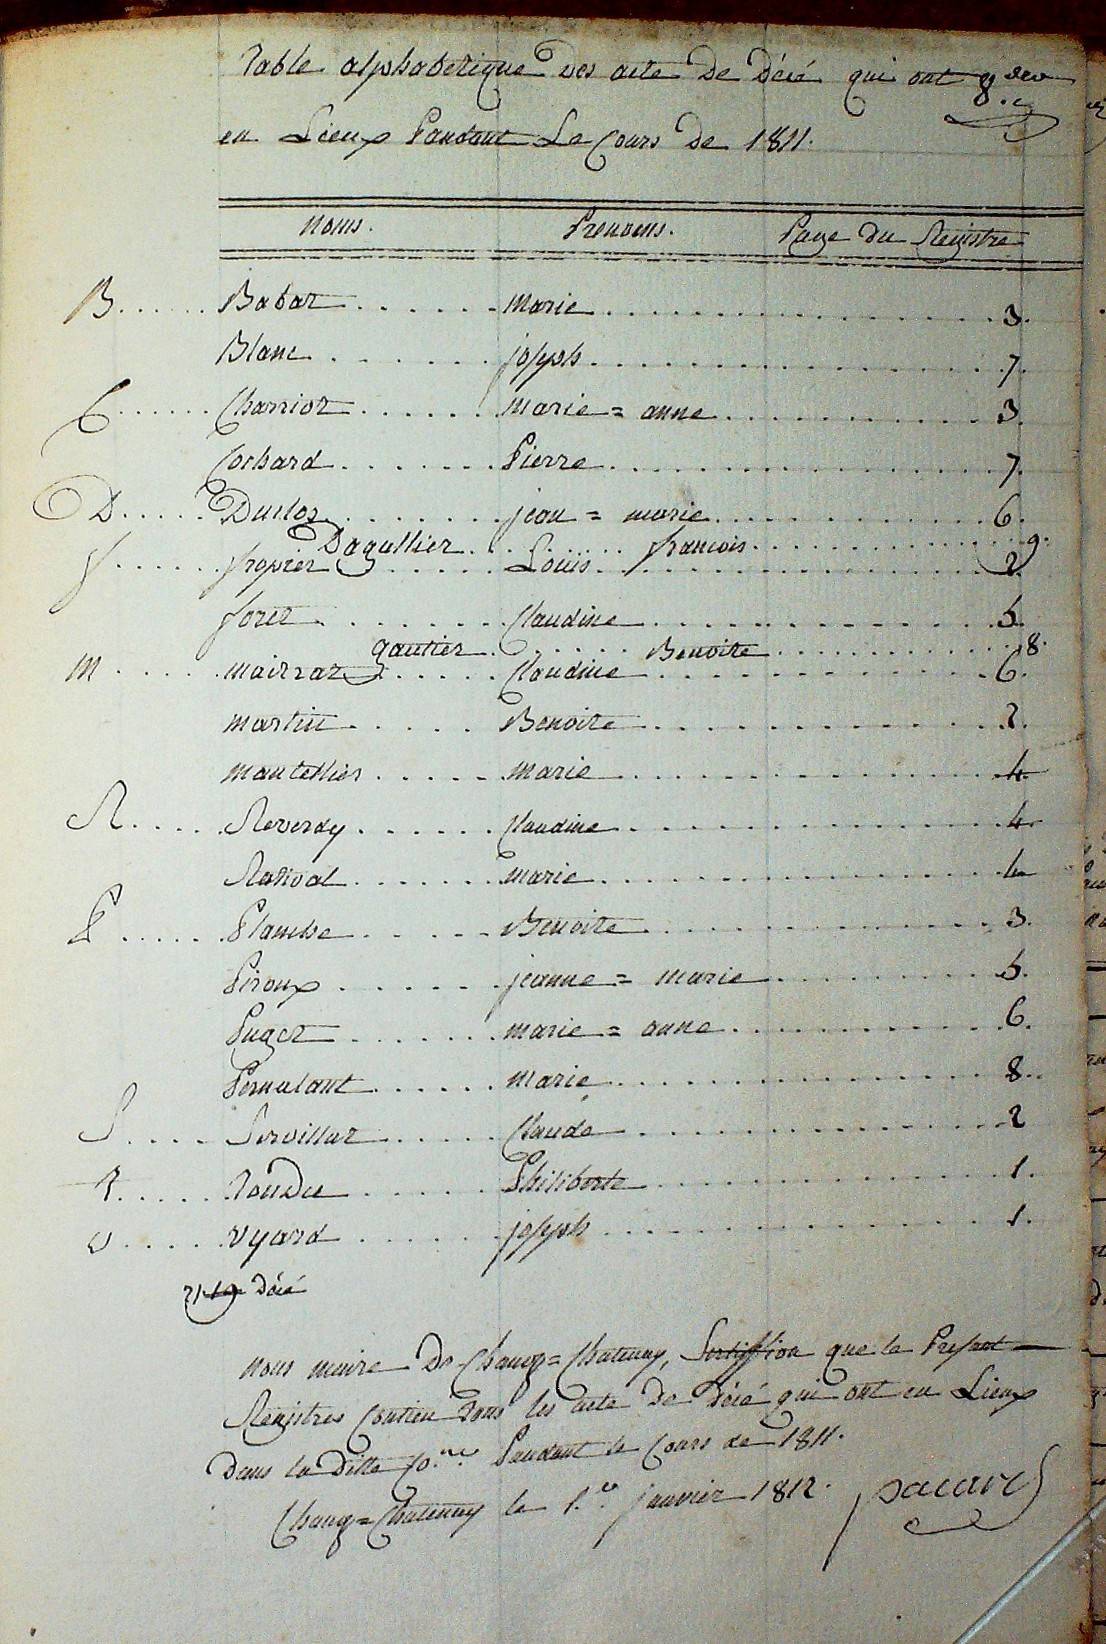 Table alphabetique des acte de décé qui ont
en Lieux Pandant Le Cours de 1811.
Noms. Prenoms. Page du Registre
B...... Babat ...... Marie ...... 3.
Blanc ...... joseph ...... 7.
C...... Charriot ...... Marie = anne ...... 3.
Cochard ...... Pierre ...... 7
D..... Duclos ...... jean = marie ...... 6.
Dagallier ...... francois ...... 9.
f...... fropier ...... Louis ...... 2.
foret ...... Claudine ...... 5.
gautier ...... Benoite ...... 8.
M...... Mairrat ...... Claudine ...... 6.
Martin ...... Benoite ...... 2.
Mantellier ...... Marie ...... 4
R..... Reverdy ...... Claudine ...... 4
Rativat ...... Marie ...... 4
P..... Planche ...... Benoite ...... 3.
Piroux ...... jeanne = marie ...... 5.
Puget ...... marie = anne ...... 6.
Pernulant ...... Marie ...... 8.
S..... Servillat ...... Claude ...... 2
T..... Tondu ...... Philiberte ...... 1.
V..... Vyard ...... joseph ...... 1.
21 décé
Nous maire De Chanoz=Chatenay, Sertiffion que le Presant
Registres Contien Tous les acte De Décé qui ont eu Lieux
Dans la Ditte Co.ne Pendant le Cours de 1811.
Chanoz=Chatenay le 1.er janvier 1812. pacard